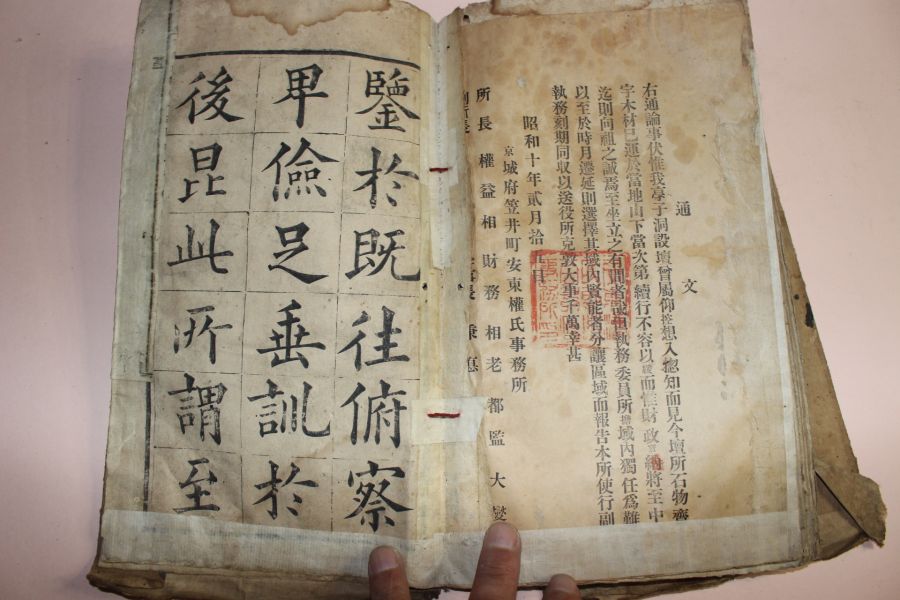 通文
右通諭事伏惟我學子洞設壇曾屬仰控想入摠知而見今壇所石物齊
宇木材已運於當地山下當次第續行不容以而惟財政將至中
迄則向祖之誠焉至坐立之有間者哉執務委員所域內獨任爲難
以至於時月遷延則選擇其域內賢能者分讓區域而報告本所使行副
執務刻期同收以送役所克敦大事千萬幸甚
昭和十年貳月拾五日
京城府笠井町安東權氏事務所
所長 權益相 財務 相老 都監 大燮
鑒於既往俯察
卑儉足垂訓於
後昆此所謂至